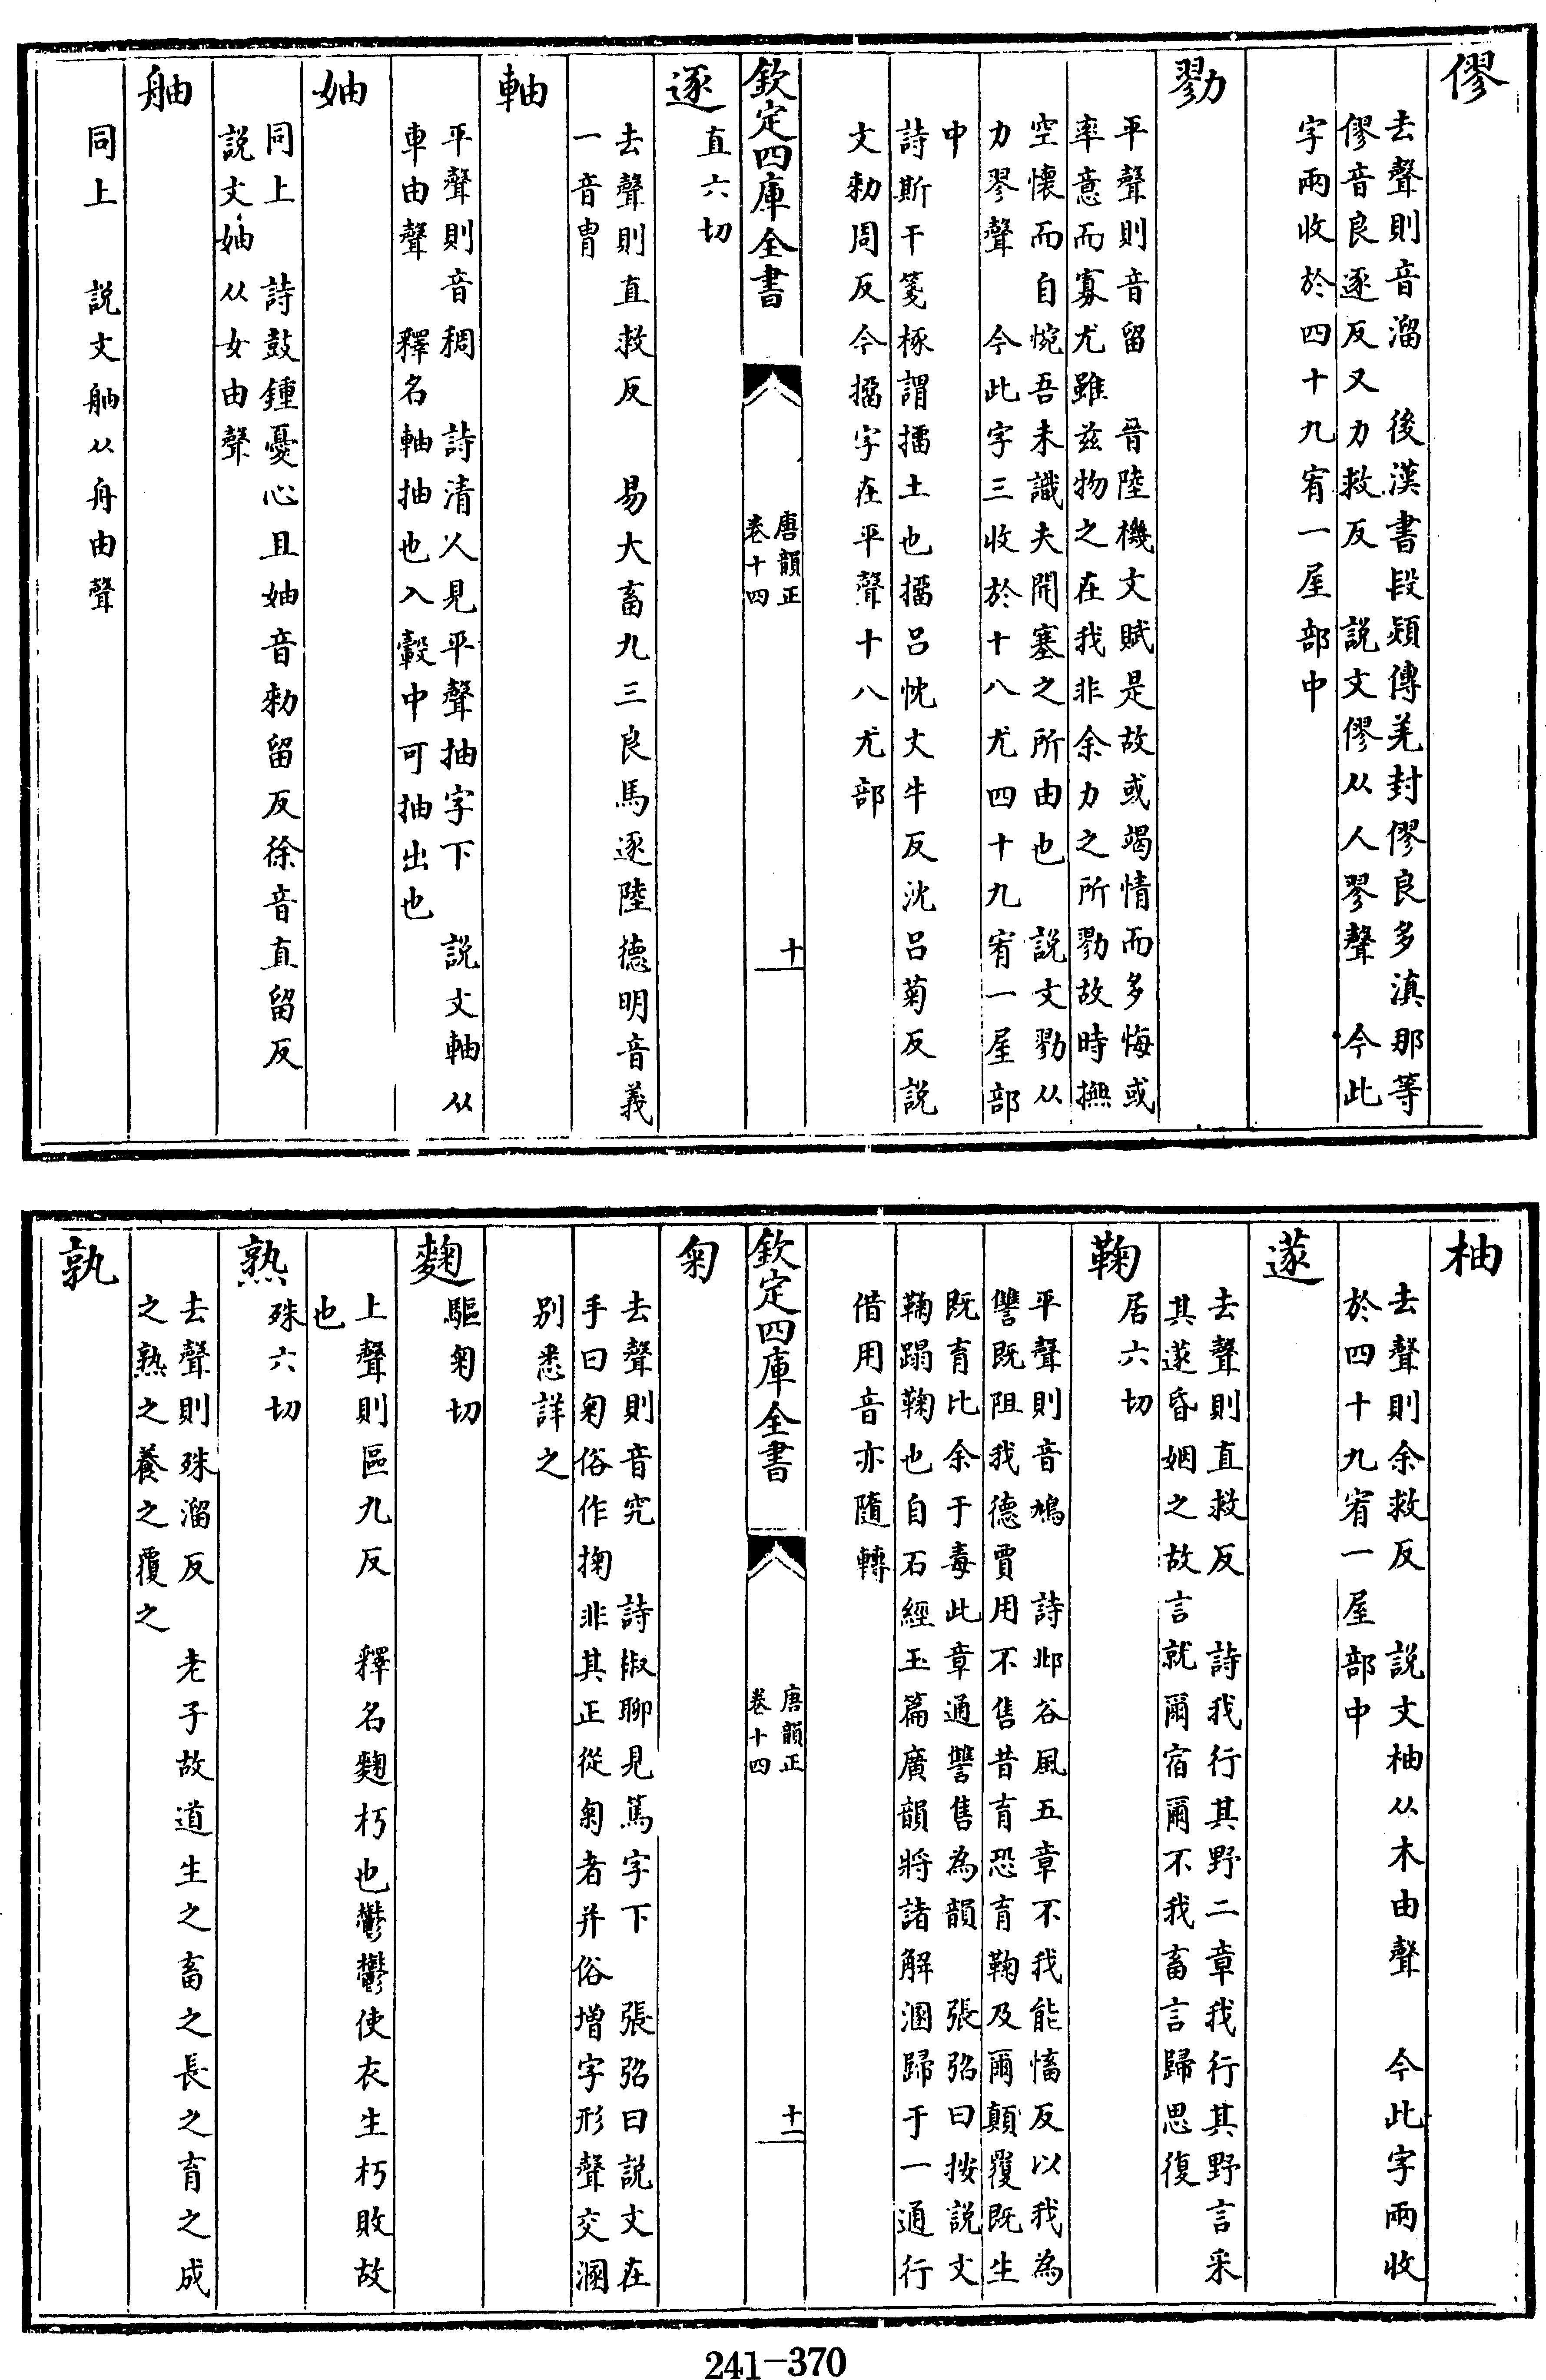 僇
去聲則音溜　後漢書段熲傳羌封僇良多滇那等
僇音良逐反又力救反　説文僇从人翏聲　今此
字兩收於四十九宥一屋部中
勠
平聲則音留　晉陸機文賦是故或竭情而多悔或
率意而寡尤雖兹物之在我非余力之所勠故時撫
空懷而自惋吾未識夫開塞之所由也　説文勠从
力翏聲　今此字三收於十八尤四十九宥一屋部
中
詩斯干箋椓謂㩅土也㩅吕忱丈牛反沈吕菊反説
文勅周反今㩅字在平聲十八尤部
欽定四庫全書
唐韻正
卷十四
十
逐
直六切
去聲則直救反　易大畜九三良馬逐陸德明音義
一音胄
軸
平聲則音稠　詩清人見平聲抽字下　説文軸从
車由聲　釋名軸抽也入轂中可抽出也
妯
同上　詩鼓鍾憂心且妯音勑留反徐音直留反
説文妯从女由聲
舳
同上　説文舳从舟由聲
柚
去聲則余救反　説文柚从木由聲　今此字兩收
於四十九宥一屋部中
蓫
去聲則直救反　詩我行其野二章我行其野言采
其蓫昏姻之故言就爾宿爾不我畜言歸思復
鞠
居六切
平聲則音鳩　詩邶谷風五章不我能慉反以我為
讐既阻我德賈用不售昔育恐育鞠及爾顛覆既生
既育比余于毒此章通讐售為韻　張弨曰按説文
鞠蹋鞠也自石經玉篇廣韻將諸解溷歸于一通行
借用音亦隨轉
欽定四庫全書
唐韻正
卷十四
十一
匊
去聲則音究　詩椒聊見篤字下　張弨曰説文在
手曰匊俗作掬非其正從匊者并俗増字形聲交溷
别悉詳之
麴
驅匊切
上聲則區九反　釋名麴朽也鬱鬱使衣生朽敗故
也
熟
殊六切
去聲則殊溜反　老子故道生之畜之長之育之成
之熟之養之覆之
孰
241-370